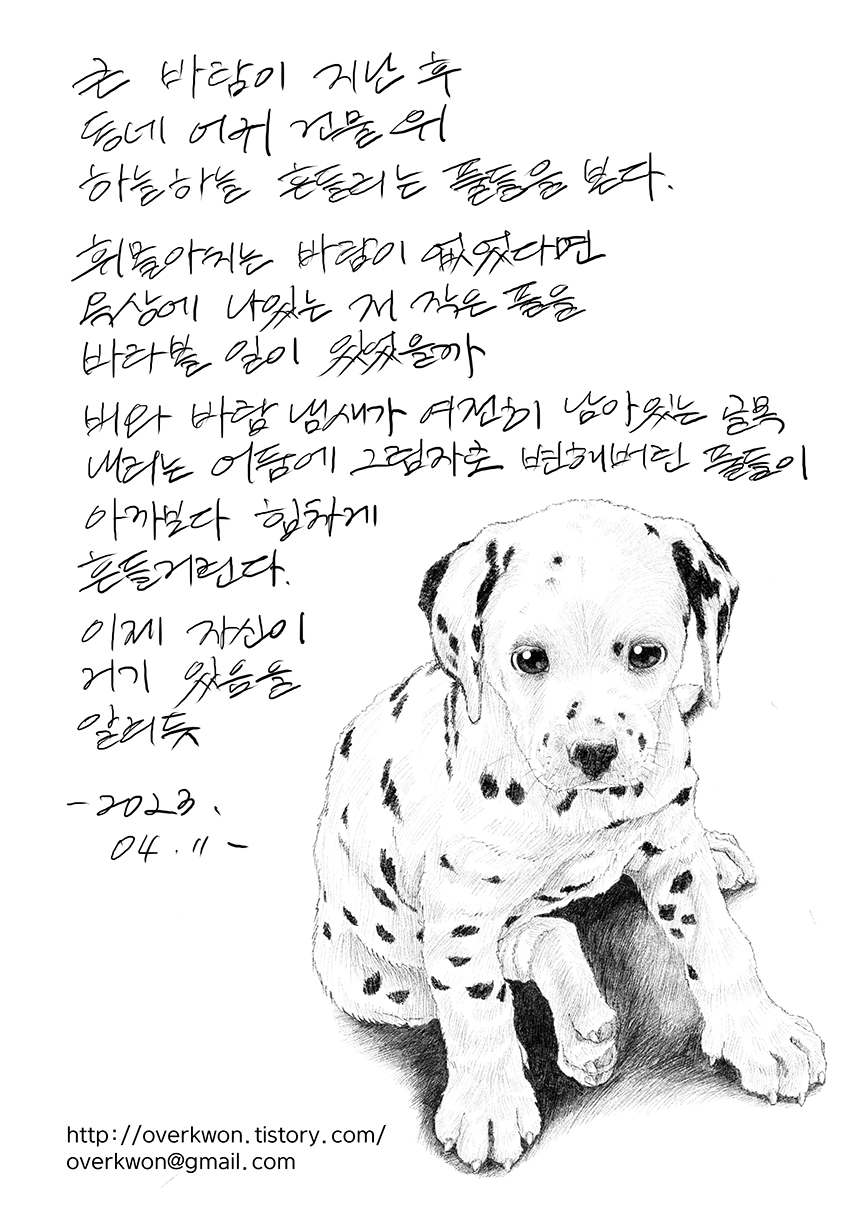 큰 바람이 지난 후
동네 어귀 건물 위
하늘하늘 흔들리는 풀들을 본다.
휘몰아치는 바람이 없었다면
옥상에 나있는 저 작은 풀을
바라볼 일이 있었을까
비와 바람 냄새가 여전히 남아있는 골목
내리는 어둠에 그림자로 변해버린 풀들이
아까보다 힘차게
흔들거린다.
이제 자신이
거기 있음을
알리듯
-2023.
04.11-
http://overkwon.tistory.com/
overkwon@gmail.com